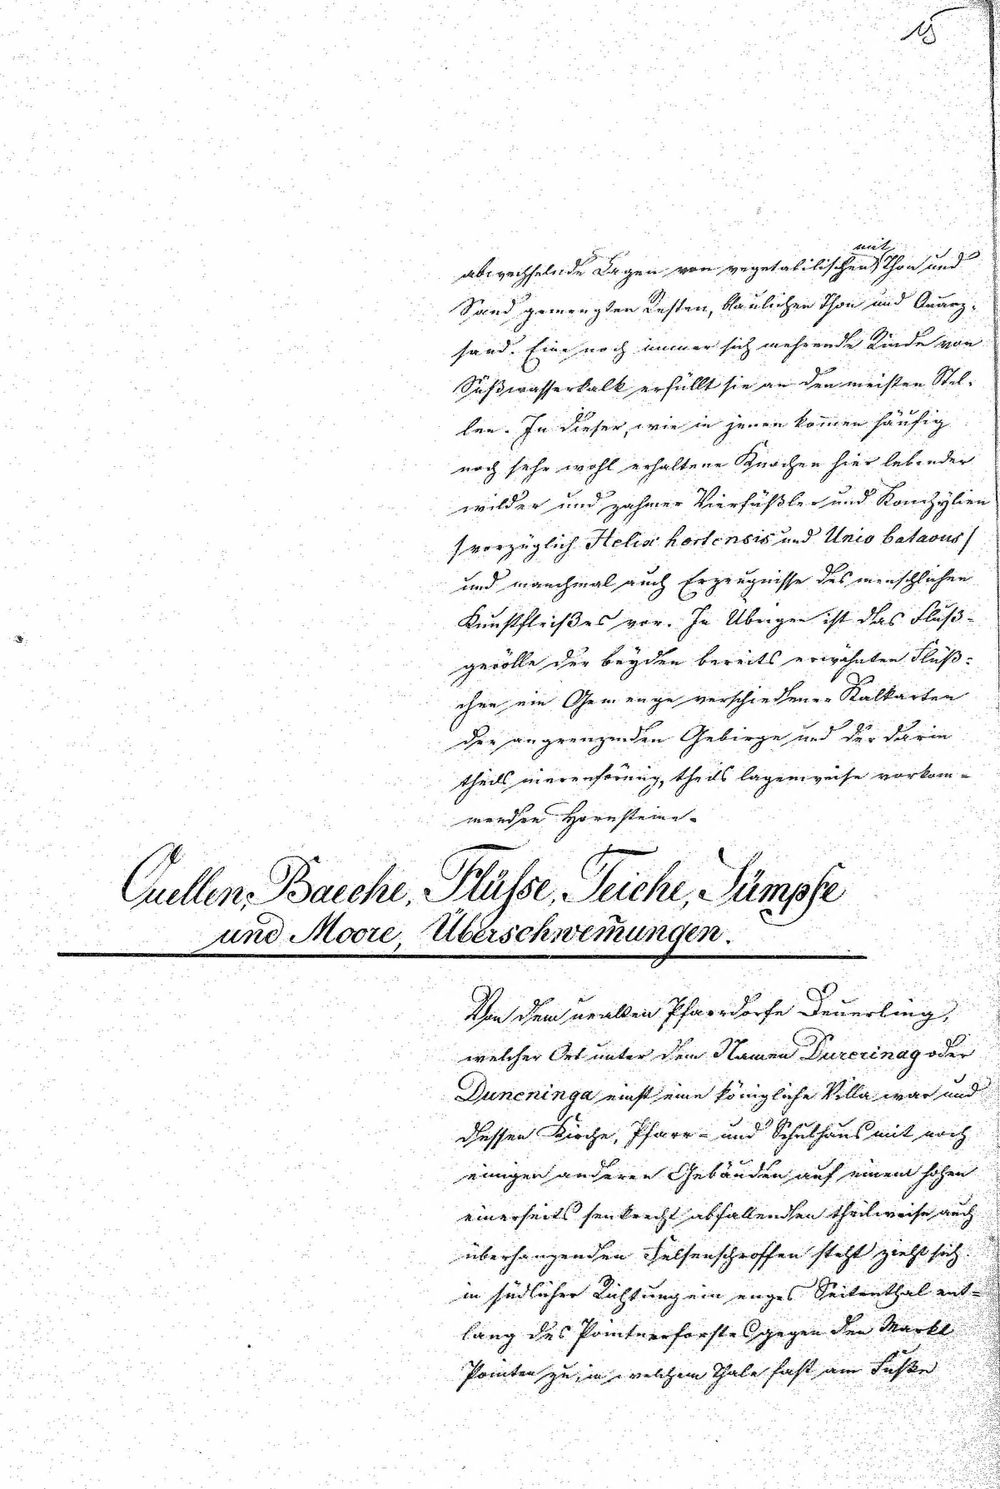 15
mit
abwechselnde Lagen von vegetabilischen Thon und
Sand gemengten Resten, blaulichen Thon und Quarz-
sand. Eine noch immer sich mehrende Rinde von
Süßwasserkalk erfüllt sie an den meisten Stel-
len. In dieser, wie in jenen kom̄en häufig
noch sehr wohl erhaltene Knochen hier lebender
wilder und zahmer Vierfüßler und Konchylien
/vorzüglich Helix hortensis und Unio batavus/
und manchmal auch Erzeugnisse des menschlichen
Kunstfleißes vor. Im Übrigen ist das Fluß-
gerölle der beyden bereits erwähnten Flüß-
chen ein Gemenge verschiedener Kalkarten
der angrenzenden Gebirge und der darin
theils nierenförmig, theils lagenweise vorkom-
menden Hornsteine.
Quellen, Baeche, Flüsse, Teiche, Sümpfe
und Moore, Überschwem̄ungen.
Von dem uralten Pfarrdorfe Deuerling,
welcher Ort unter dem Namen Durerinag oder
Duneninga einst eine königliche Villa war und
dessen Kirche, Pfarr- und Schulhaus mit noch
einigen anderen Gebäuden auf einem hohen
einerseits senkrecht abfallenden theilweise auch
überhangenden Felsenschroffen steht zieht sich
in südlicher Richtung ein enges Seitenthal ent-
lang des Pointnerforstes gegen den Markt
Pointen zu, in welchem Thale fast am Fuße